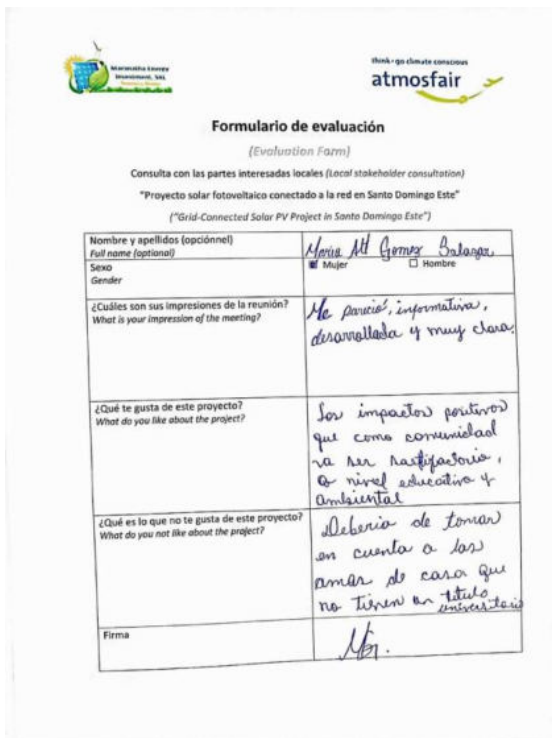 Maranatha Energy
Investment, SRL
think • go climate conscious
atmosfair
Formulario de evaluación
(Evaluation Form)
Consulta con las partes interesadas locales (Local stakeholder consultation)
"Proyecto solar fotovoltaico conectado a la red en Santo Domingo Este"
("Grid-Connected Solar PV Project in Santo Domingo Este")
Nombre y apellidos (opciónnel)
Full name (optional)
Maria Alt Gomez Salazar
Sexo
Gender
Mujer
Hombre
¿Cuáles son sus impresiones de la reunión?
What is your impression of the meeting?
Me pareció, informativa,
desarrollada y muy clara.
¿Qué te gusta de este proyecto?
What do you like about the project?
Los impactos positivos
que como comunidad
va ser satifactoria,
a nivel educativo y
ambiental
¿Qué es lo que no te gusta de este proyecto?
What do you not like about the project?
Deberia de tomar
en cuenta a las
amas de casa que
no tienen un titulo
universitario
Firma